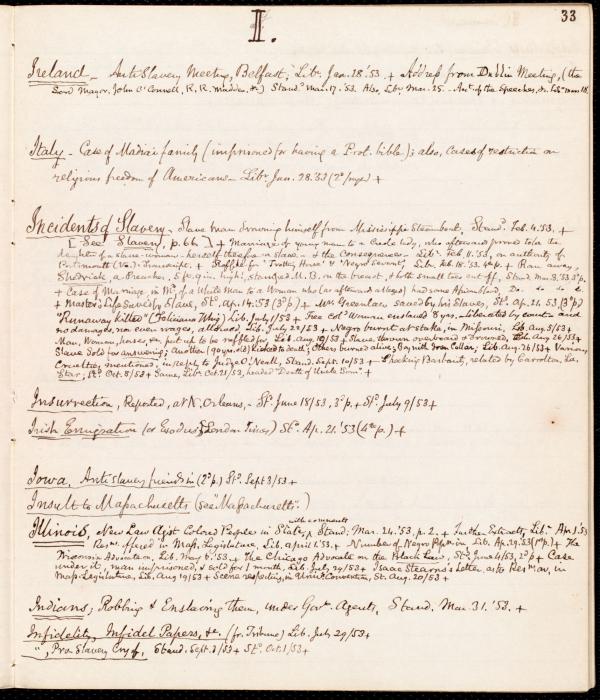 33
I.
Ireland – Anti Slavery Meeting, Belfast, Libr. Jan. 28 '53. + Address from Dublin Meeting, (the
Lord Mayor, John O'Connell, R. R. Madden, &c) Stand. Mar. 17. '53. Also, Libr. Mar. 25. –
Italy – Case of Madiai family (imprisoned for having a Prot. bible); also, Cases of restriction on
religious freedom of Americans – Libr. Jan. 28. 53 (2d page) +
Incidents of Slavery – Slave man drowning himself from Mississippi Steamboat, Stand. Feb. 4. 53. +
[See Slavery, p. 66] + Marriage of young man to a Creole lady, who afterward proved to be the
daughter of a slave-woman – herself therefore a slave – & the Consequences – Libr. Feb. 11. 53, on authority of
Portsmouth (Va.) Transcript. + Raffle for "Trotting Horse" & "Negro Servant", Libr. + Ran away,
Shedrick, a Preacher, 5 ft. 9 in. high, stamped N. B. on the breast, & both small toes cut off, Stand. Mar. 3. 53
+ Case of Marriage, in of a White Man to a Woman who (as afterward alleged) had some African blood, Do.
+ Master's Life Saved by Slave, St. Apr. 14. 53 (3d p.) + Mrs. Greenlaw saved by his Slaves, St. Ap. 21. 53 (3d p)
"Runaway killed" (Feliciana Whig) Lib. July 1/53 + Free cold. Woman enslaved 8 yrs. – liberated by court and
no damages, nor even wages, allowed, Lib. July 22/53 + Negro burnt at stake, in Missouri, Lib. Aug. 5/53 +
Man, Woman, horse, &c. put up to be raffled for Lib. Aug. 19/53 + Slave thrown overboard & drowned, Lib. Aug 26/53 +
Slave sold for answering; Another (90 yrs. old) kicked to death; Others burned alive; Lib. Aug. 26/53 + Various
Cruelties mentioned, in reply to Judge O'Neall, Stand. Sept. 10/53 + Shocking Barbarity, related by Carrolton, La.
Star, St. Oct. 8/53 + Same, Libr. Oct. 21/53, headed "Death of Uncle Tom". +
Insurrection, Reported, at N. Orleans, – St. June 18/53, 3d p. + St. July 9/53 +
Irish Emigration (or Exodus) (London Times) St. Ap. 21. '53 (4th p.) +
Iowa, Anti slavery friends in (2d p.) St. Sept 3/53 +
Insult to Massachusetts (See "Massachusetts".)
Illinois, New Law agst Colored People in State, with comments Stand. Mar. 24. '53. p. 2. + Further Extracts, Libr. Apr. 1 53
Resn. offered in Mass. Legislature, Lib. april 1. 53. + Number of Negro in Lib. Ap. 29. 53 + The
Wisconsin Advocate on, Lib. May 6. '53 + The Chicago Advocate on the Black Law, St. June 4/53, 2d p + Case
under it, man imprisoned, & sold for 1 month, Lib. July 29/53 + Isaac Stearns's Letter as to Resn. on, in
Mass. Legislature, Lib. Aug 19/53 + Scene respecting, in Convention, St. Aug. 20/53 +
Indians; Robbing & Enslaving Them, under Govt. Agents, Stand. Mar. 31. '53. +
Infidelity, Infidel Papers, &c. (fr. Tribune) Lib. July 29/53 +
" , Pro Slavery Cry of, Stand. Sept. 3/53 + St. Oct. 1/53 +